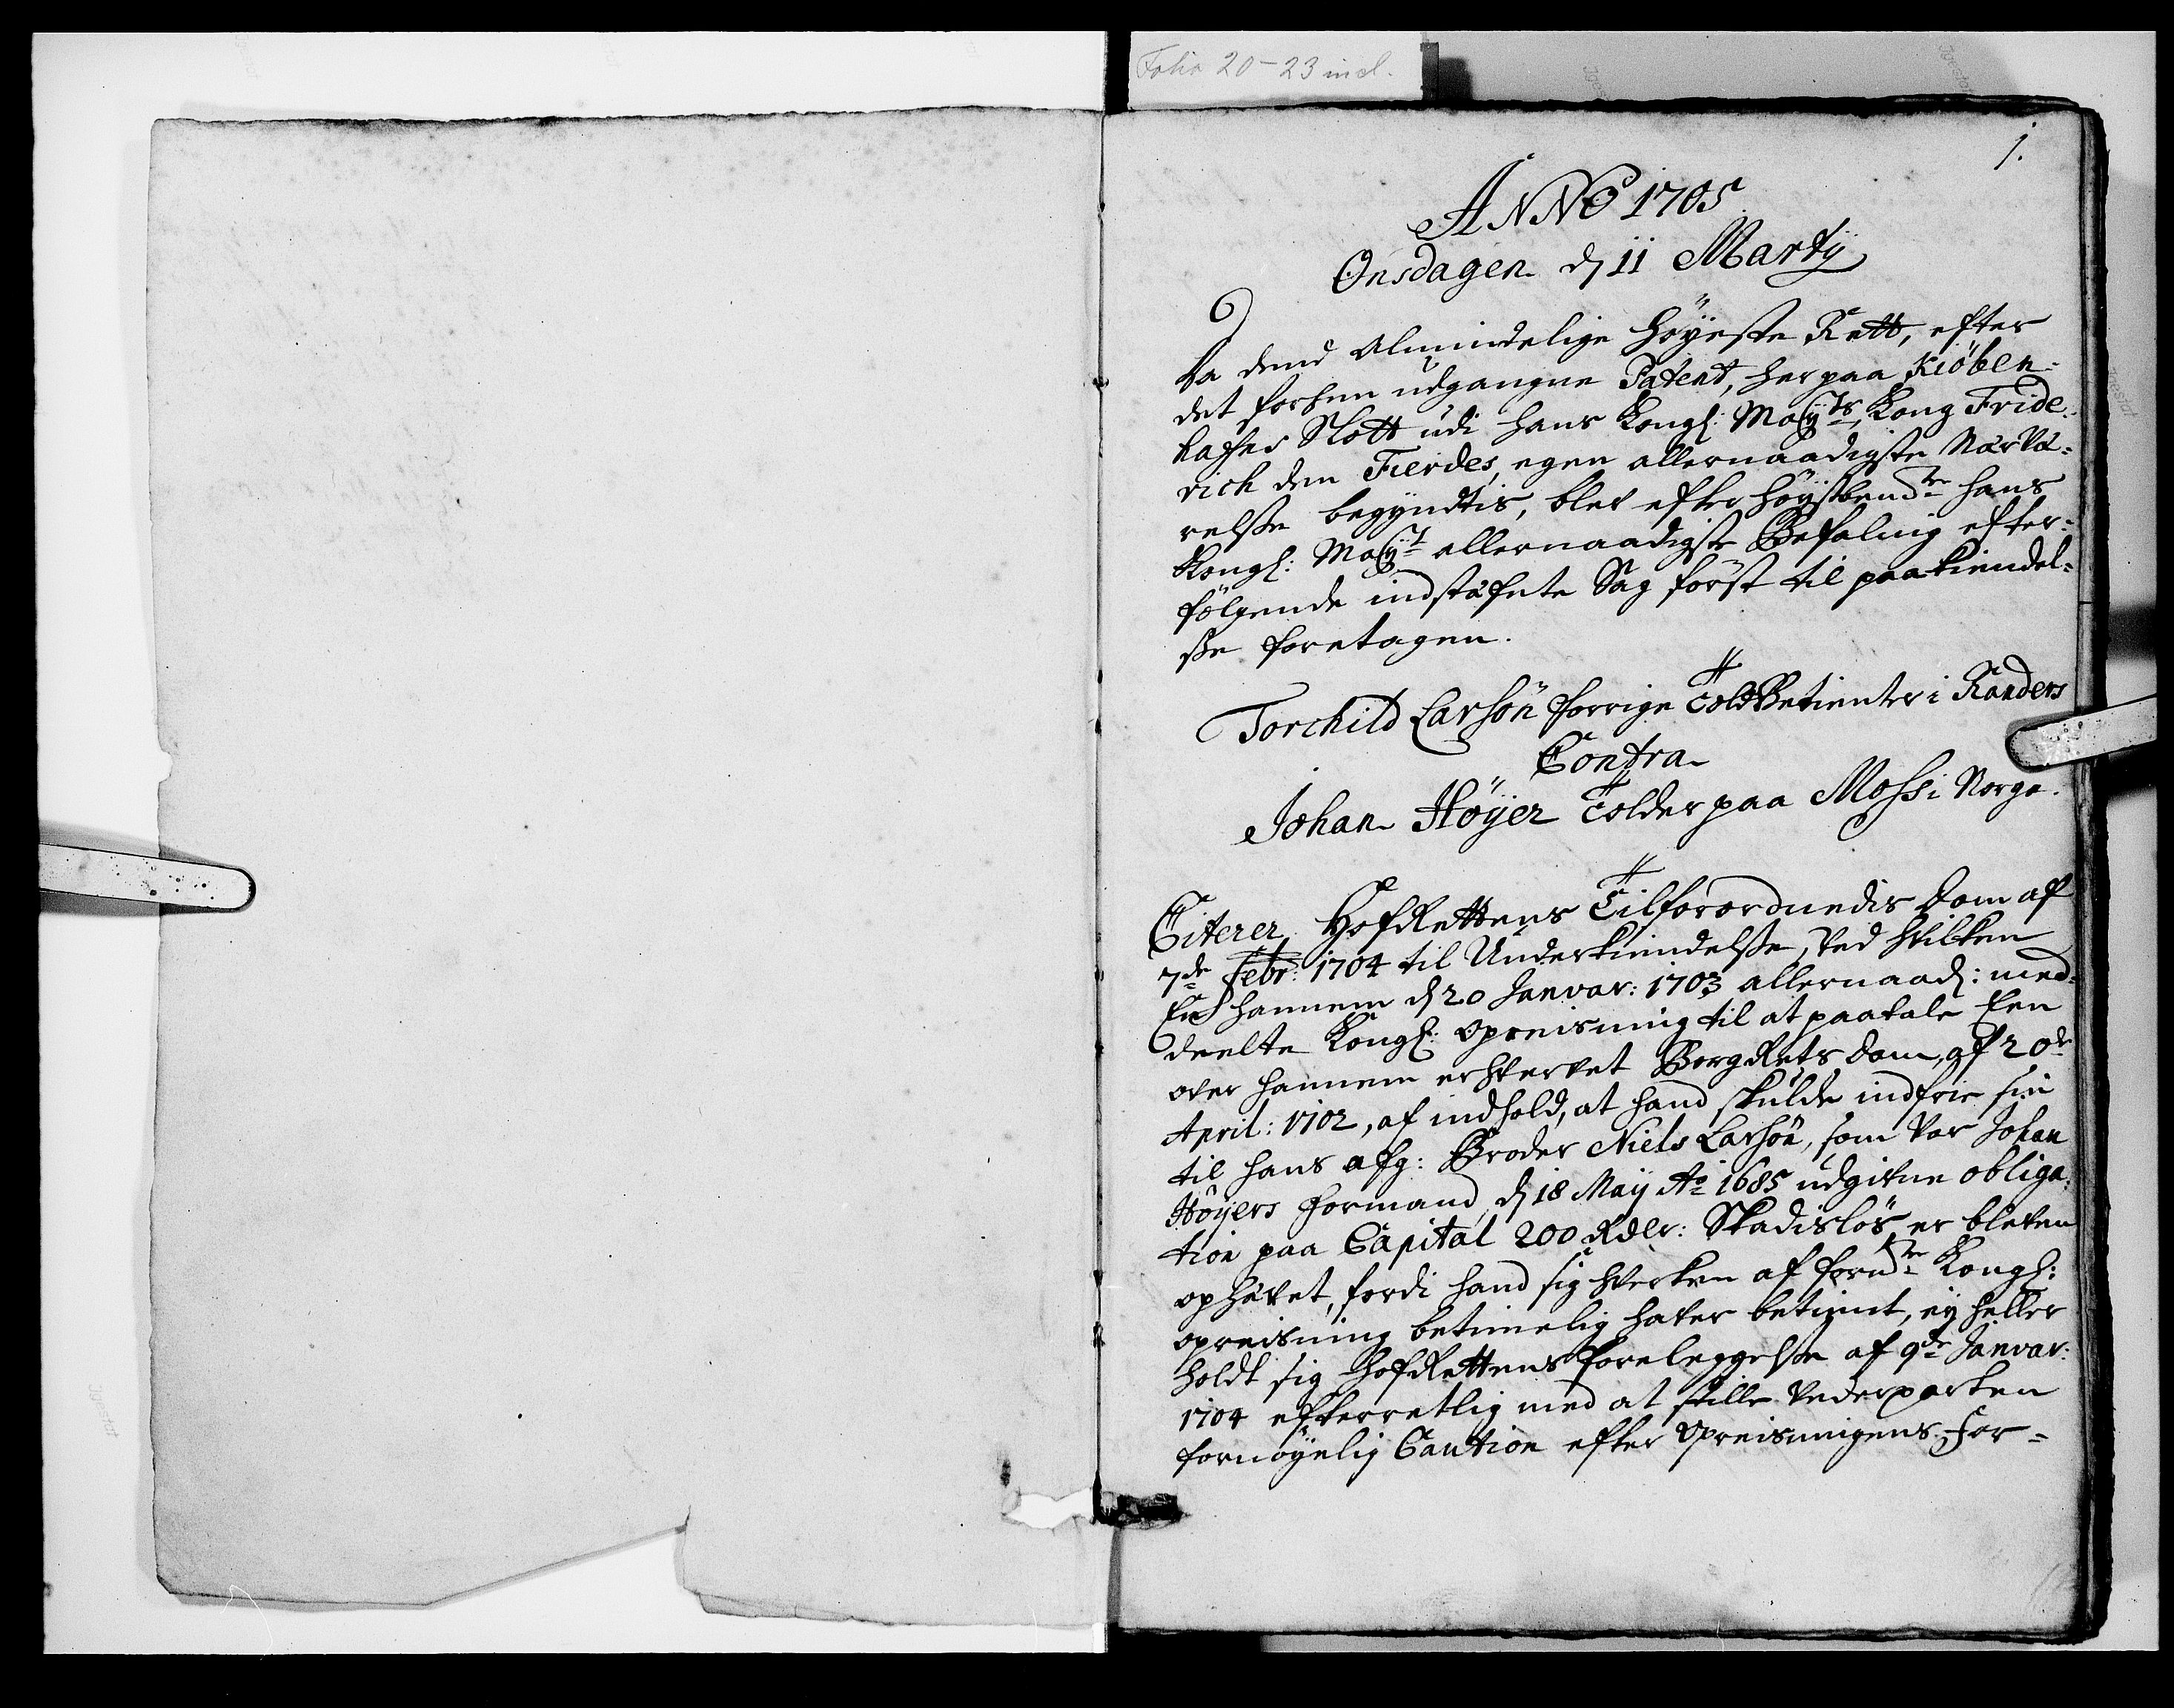 Folio 20-23 incl.
1.
ANNO 1705
Onsdagen d 11 Martij
Da dend Almindelige Höyeste Rett, efter
det forhen udgangne Patent, her paa Kiöben-
hafns Slott udi Hans Kongl: Maÿts Kong Fride-
rich den Fierdes, egen allernaadigste Nærvæ-
relsse begyndtis, blev efter höÿstbemte hans
Kongl: Maÿt allernaadigste Befaling efter-
fölgende indstæfnte Sag först til paakiendel-
sse foretagen.
Torchild Larsön forrige Toldbetienter i Randers
Contra
Johan Höÿer Tolder paa Moss i Norge.
Citerer HofRettens Tilforordnedis Dom af
7de Febr: 1704 til Underkiendelsse, ved hvilken
En hannem d 20 Janvar: 1703 allernaad: med-
deelte Kongl: opreisning til at paatale Een
over hannem erhvervet BorgRets Dom, af 20de
April: 1702, af indhold, at hand skulde indfrie sin
til hans afg: Broder Niels Larsön, som var Johan
Höÿers Formand, d 18 Maÿ Ao 1685 udgivne obliga-
tion paa Capital 200 Rdlr: Skadislös, er bleven
ophævet, fordi hand sig hverken af fornte Kongl:
opreisning betimelig haver betient, eÿ heller
holdt sig HofRettens foreleggelsse af 9de Janvar:
1704 efterretlig med at stille Vederparten
fornöÿelig Caution efter Opreisningens For-